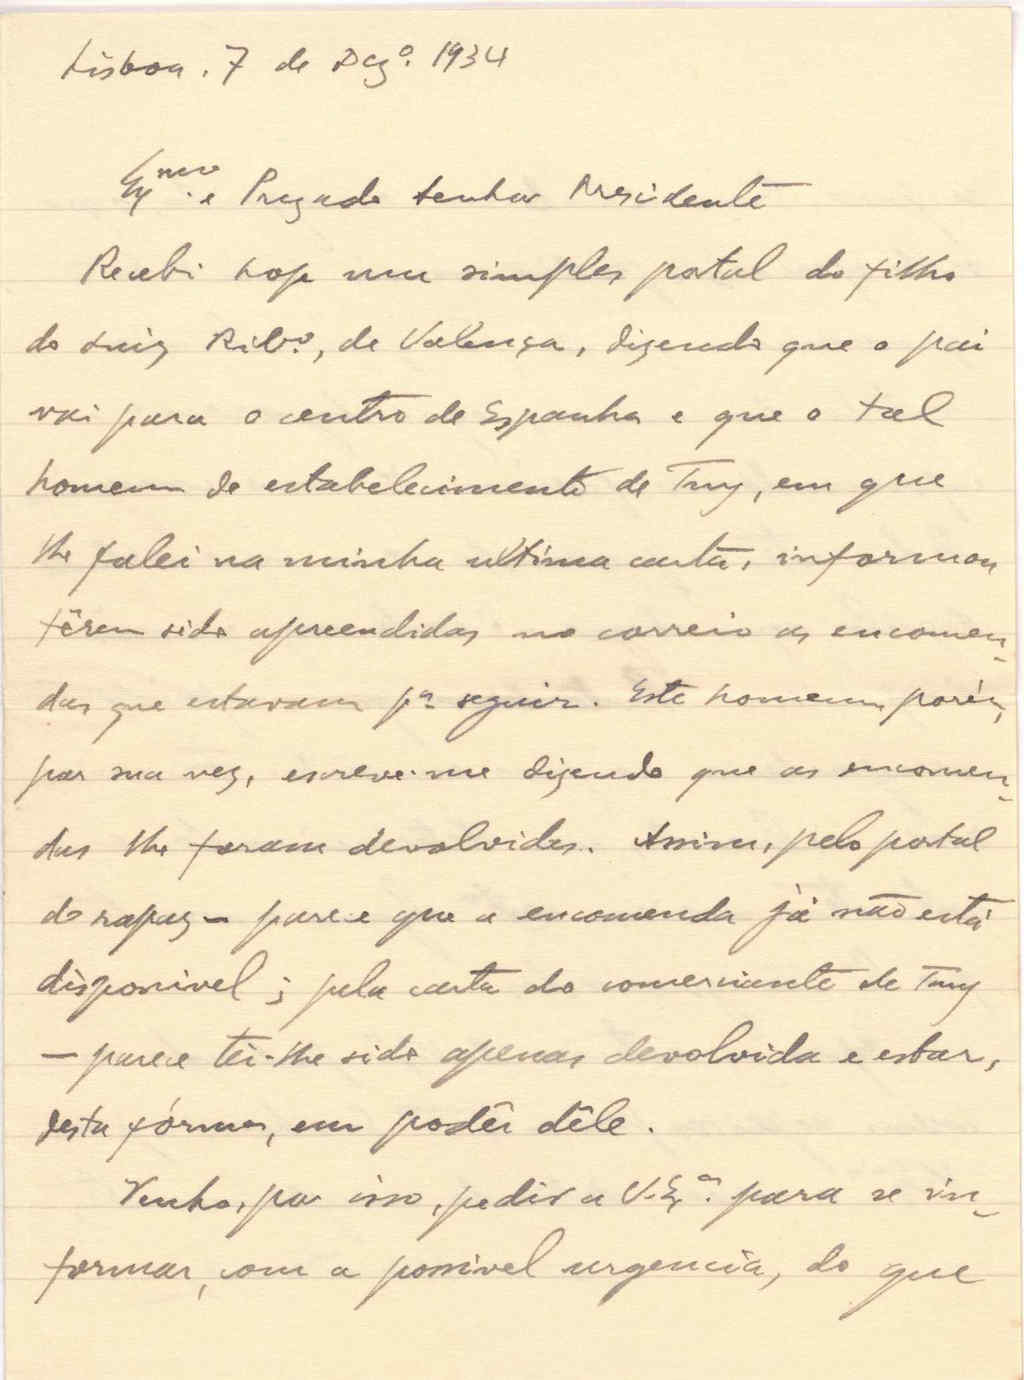 Lisboa, 7 de Dezº. 1934
Exmo. e Prezado Senhor Presidente
Recebi hoje um simples postal do filho
do Luiz Ribº., de Valença, dizendo que o pai
vai para o centro de Espanha e que o tal
homem de estabelecimento de Tuy, em que
lhe falei na minha ultima carta, informou
têrem sido apreendidas no correio as encomen-
das que estavam pª seguir. Este homem, porém,
por sua vez, escreve-me dizendo que as encomen-
das lhe foram devolvidas. Assim, pelo postal
do rapaz – parece que a encomenda já não está
disponivel; pela carta do comerciante de Tuy
– parece ter-lhe sido apenas devolvida e estar,
desta fórma, em podêr dêle.
Venho, por isso, pedir a V. Exª. para se in-
formar, com a possivel urgencia, do que